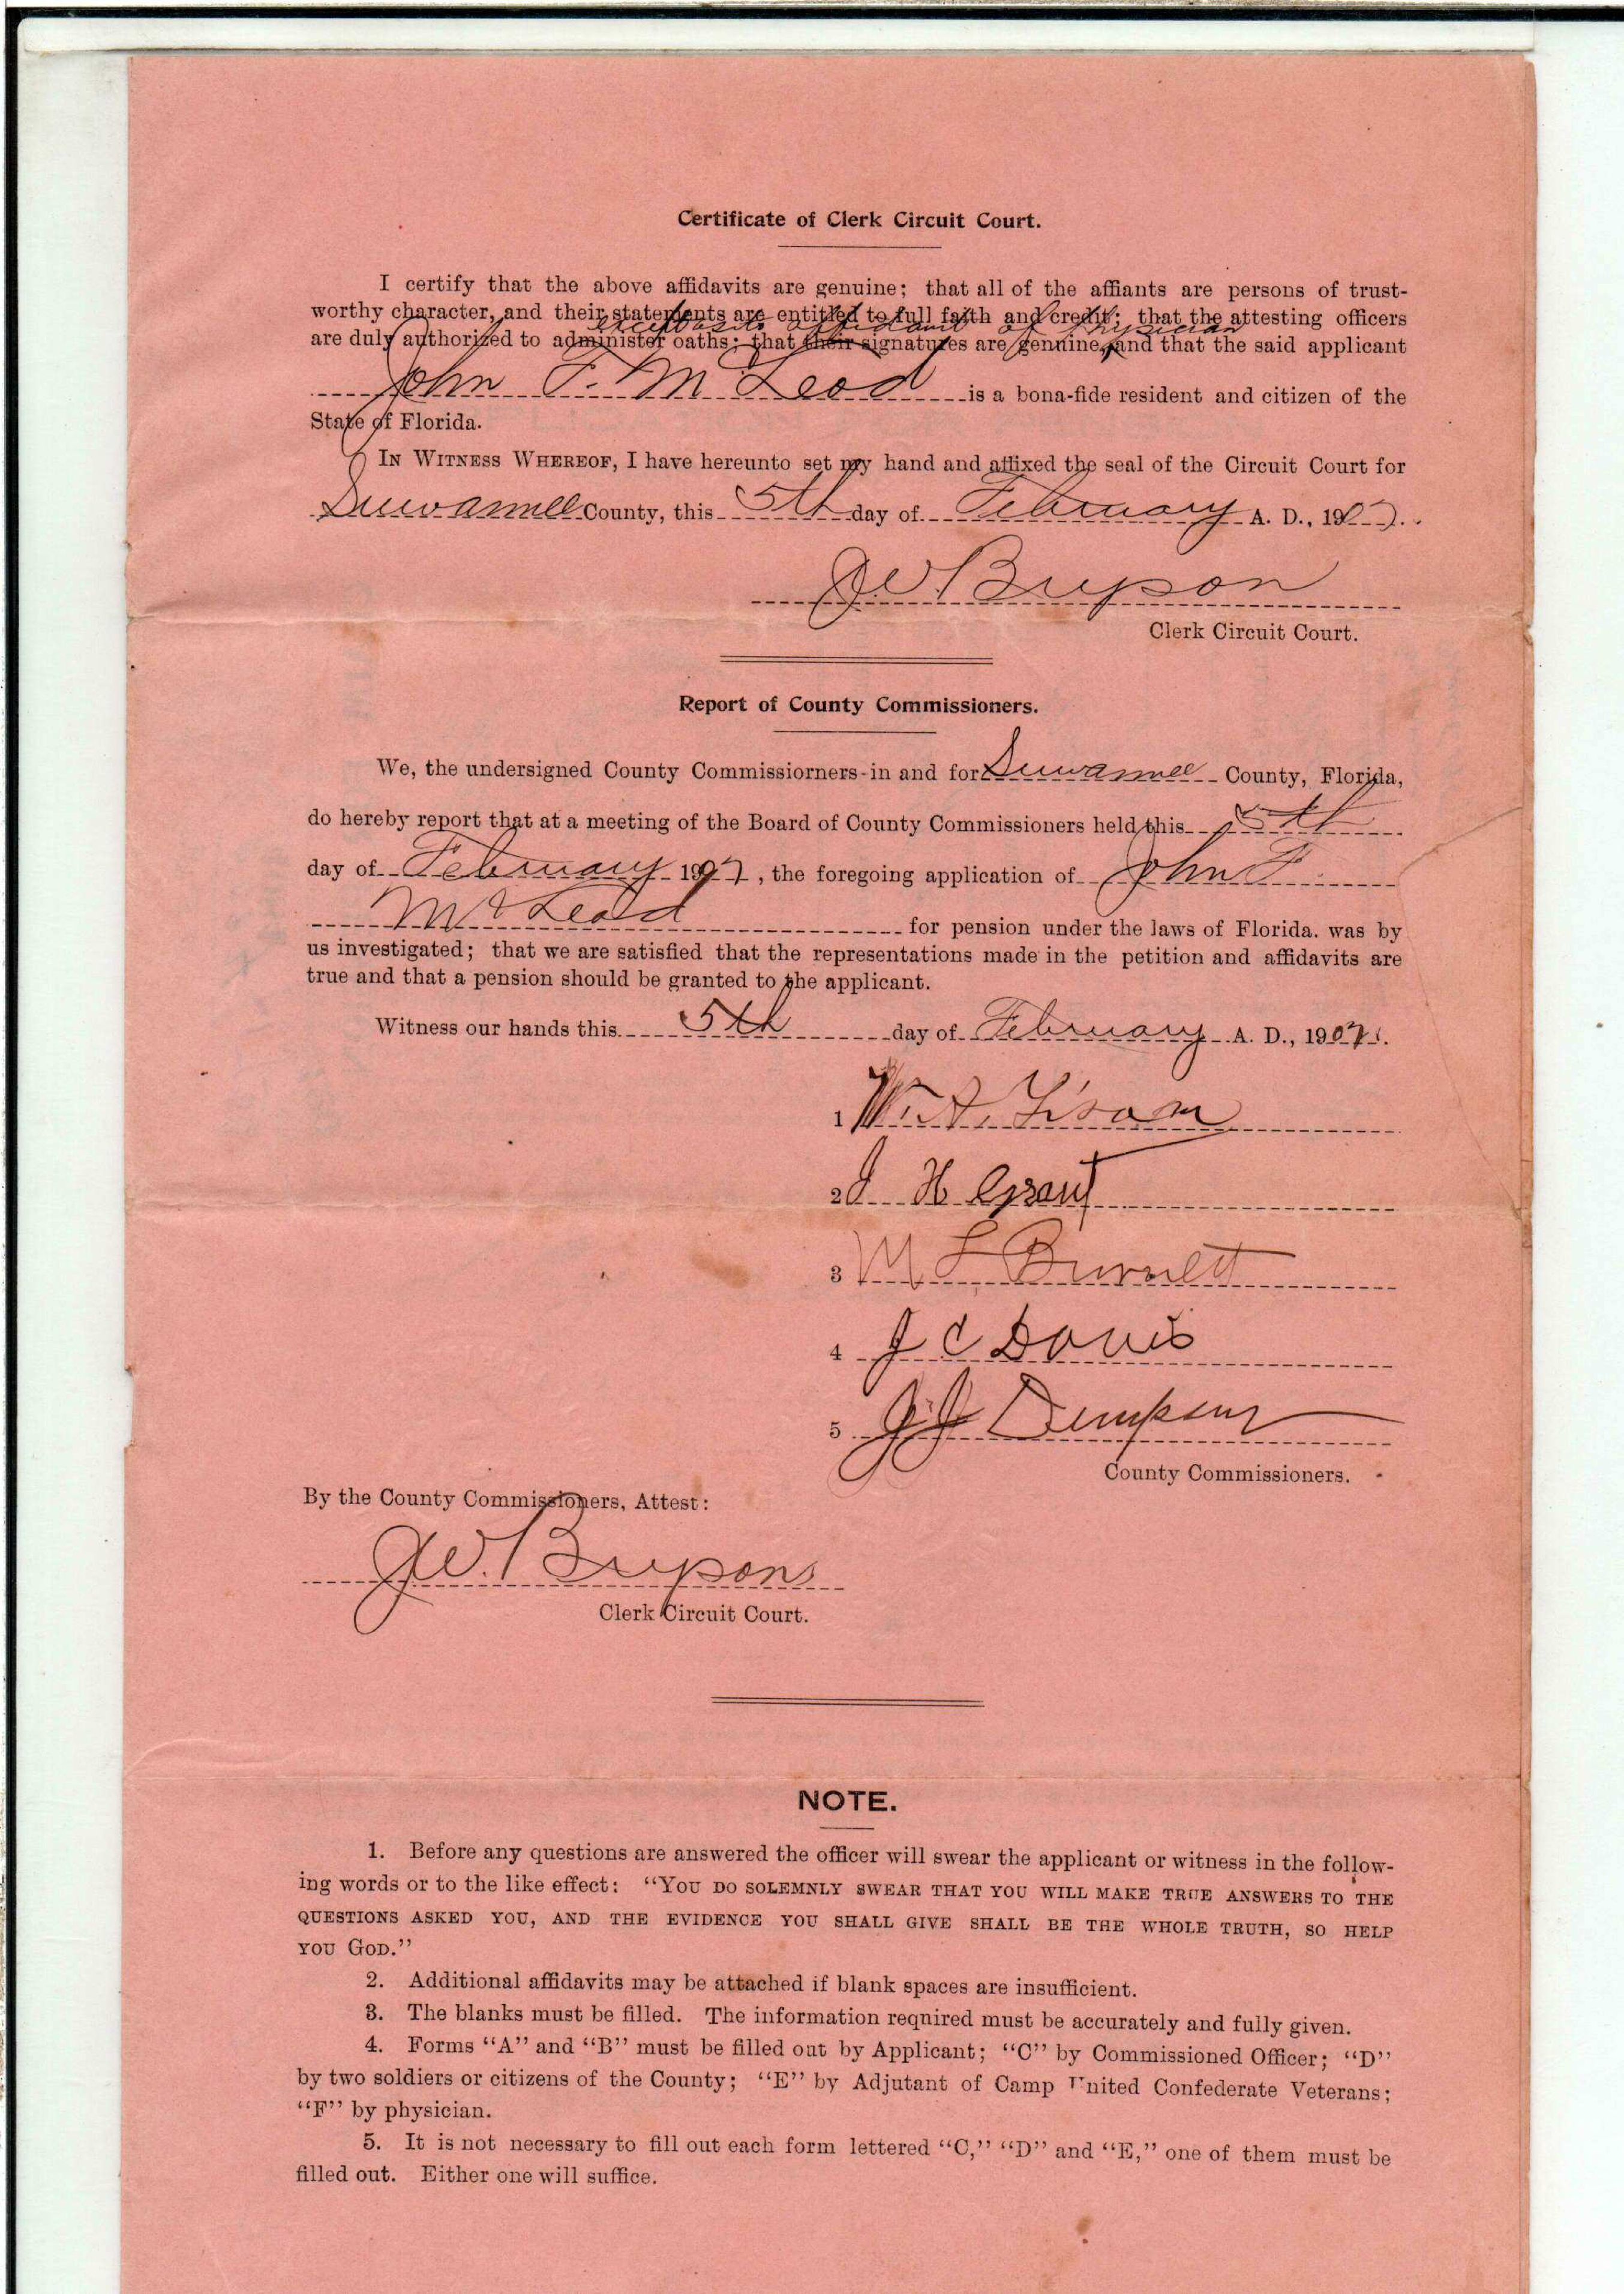 Certificate of Clerk Circuit Court.
I certify that the above affidavits are genuine; that all of the affiants are persons of trust-
worthy character, and their statements are entitled to full faith and credit; that the attesting officers
except as to affidavit of Physician
are duly authorized to administer oaths; that their signatures are genuine, and that the said applicant
John F. McLeod is a bona-fide resident and citizen of the
State of Florida.
IN WITNESS WHEREOF, I have hereunto set my hand and affixed the seal of the Circuit Court for
Suwannee County, this 5th day of February A. D., 1907.
J W. Bryson
Clerk Circuit Court.
Report of County Commissioners.
We, the undersigned County Commissiorners in and for Suwannee County, Florida,
do hereby report that at a meeting of the Board of County Commissioners held this 5th
day of February 1907, the foregoing application of John F
McLeod for pension under the laws of Florida. was by
us investigated; that we are satisfied that the representations made in the petition and affidavits are
true and that a pension should be granted to the applicant.
Witness our hands this 5th day of February A. D., 1907.
1 W. A.
2 J H Grant
3 M L Burnett
4 J C Davis
5 J J
County Commissioners.
By the County Commissioners, Attest:
J W. Bryson
Clerk Circuit Court.
NOTE.
1. Before any questions are answered the officer will swear the applicant or witness in the follow-
ing words or to the like effect: "YOU DO SOLEMNLY SWEAR THAT YOU WILL MAKE TRUE ANSWERS TO THE
QUESTIONS ASKED YOU, AND THE EVIDENCE YOU SHALL GIVE SHALL BE THE WHOLE TRUTH, SO HELP
YOU GOD."
2. Additional affidavits may be attached if blank spaces are insufficient.
3. The blanks must be filled. The information required must be accurately and fully given.
4. Forms "A" and "B" must be filled out by Applicant; "C" by Commissioned Officer; "D"
by two soldiers or citizens of the County; "E" by Adjutant of Camp United Confederate Veterans;
"F" by physician.
5. It is not necessary to fill out each form lettered "C," "D" and "E," one of them must be
filled out. Either one will suffice.